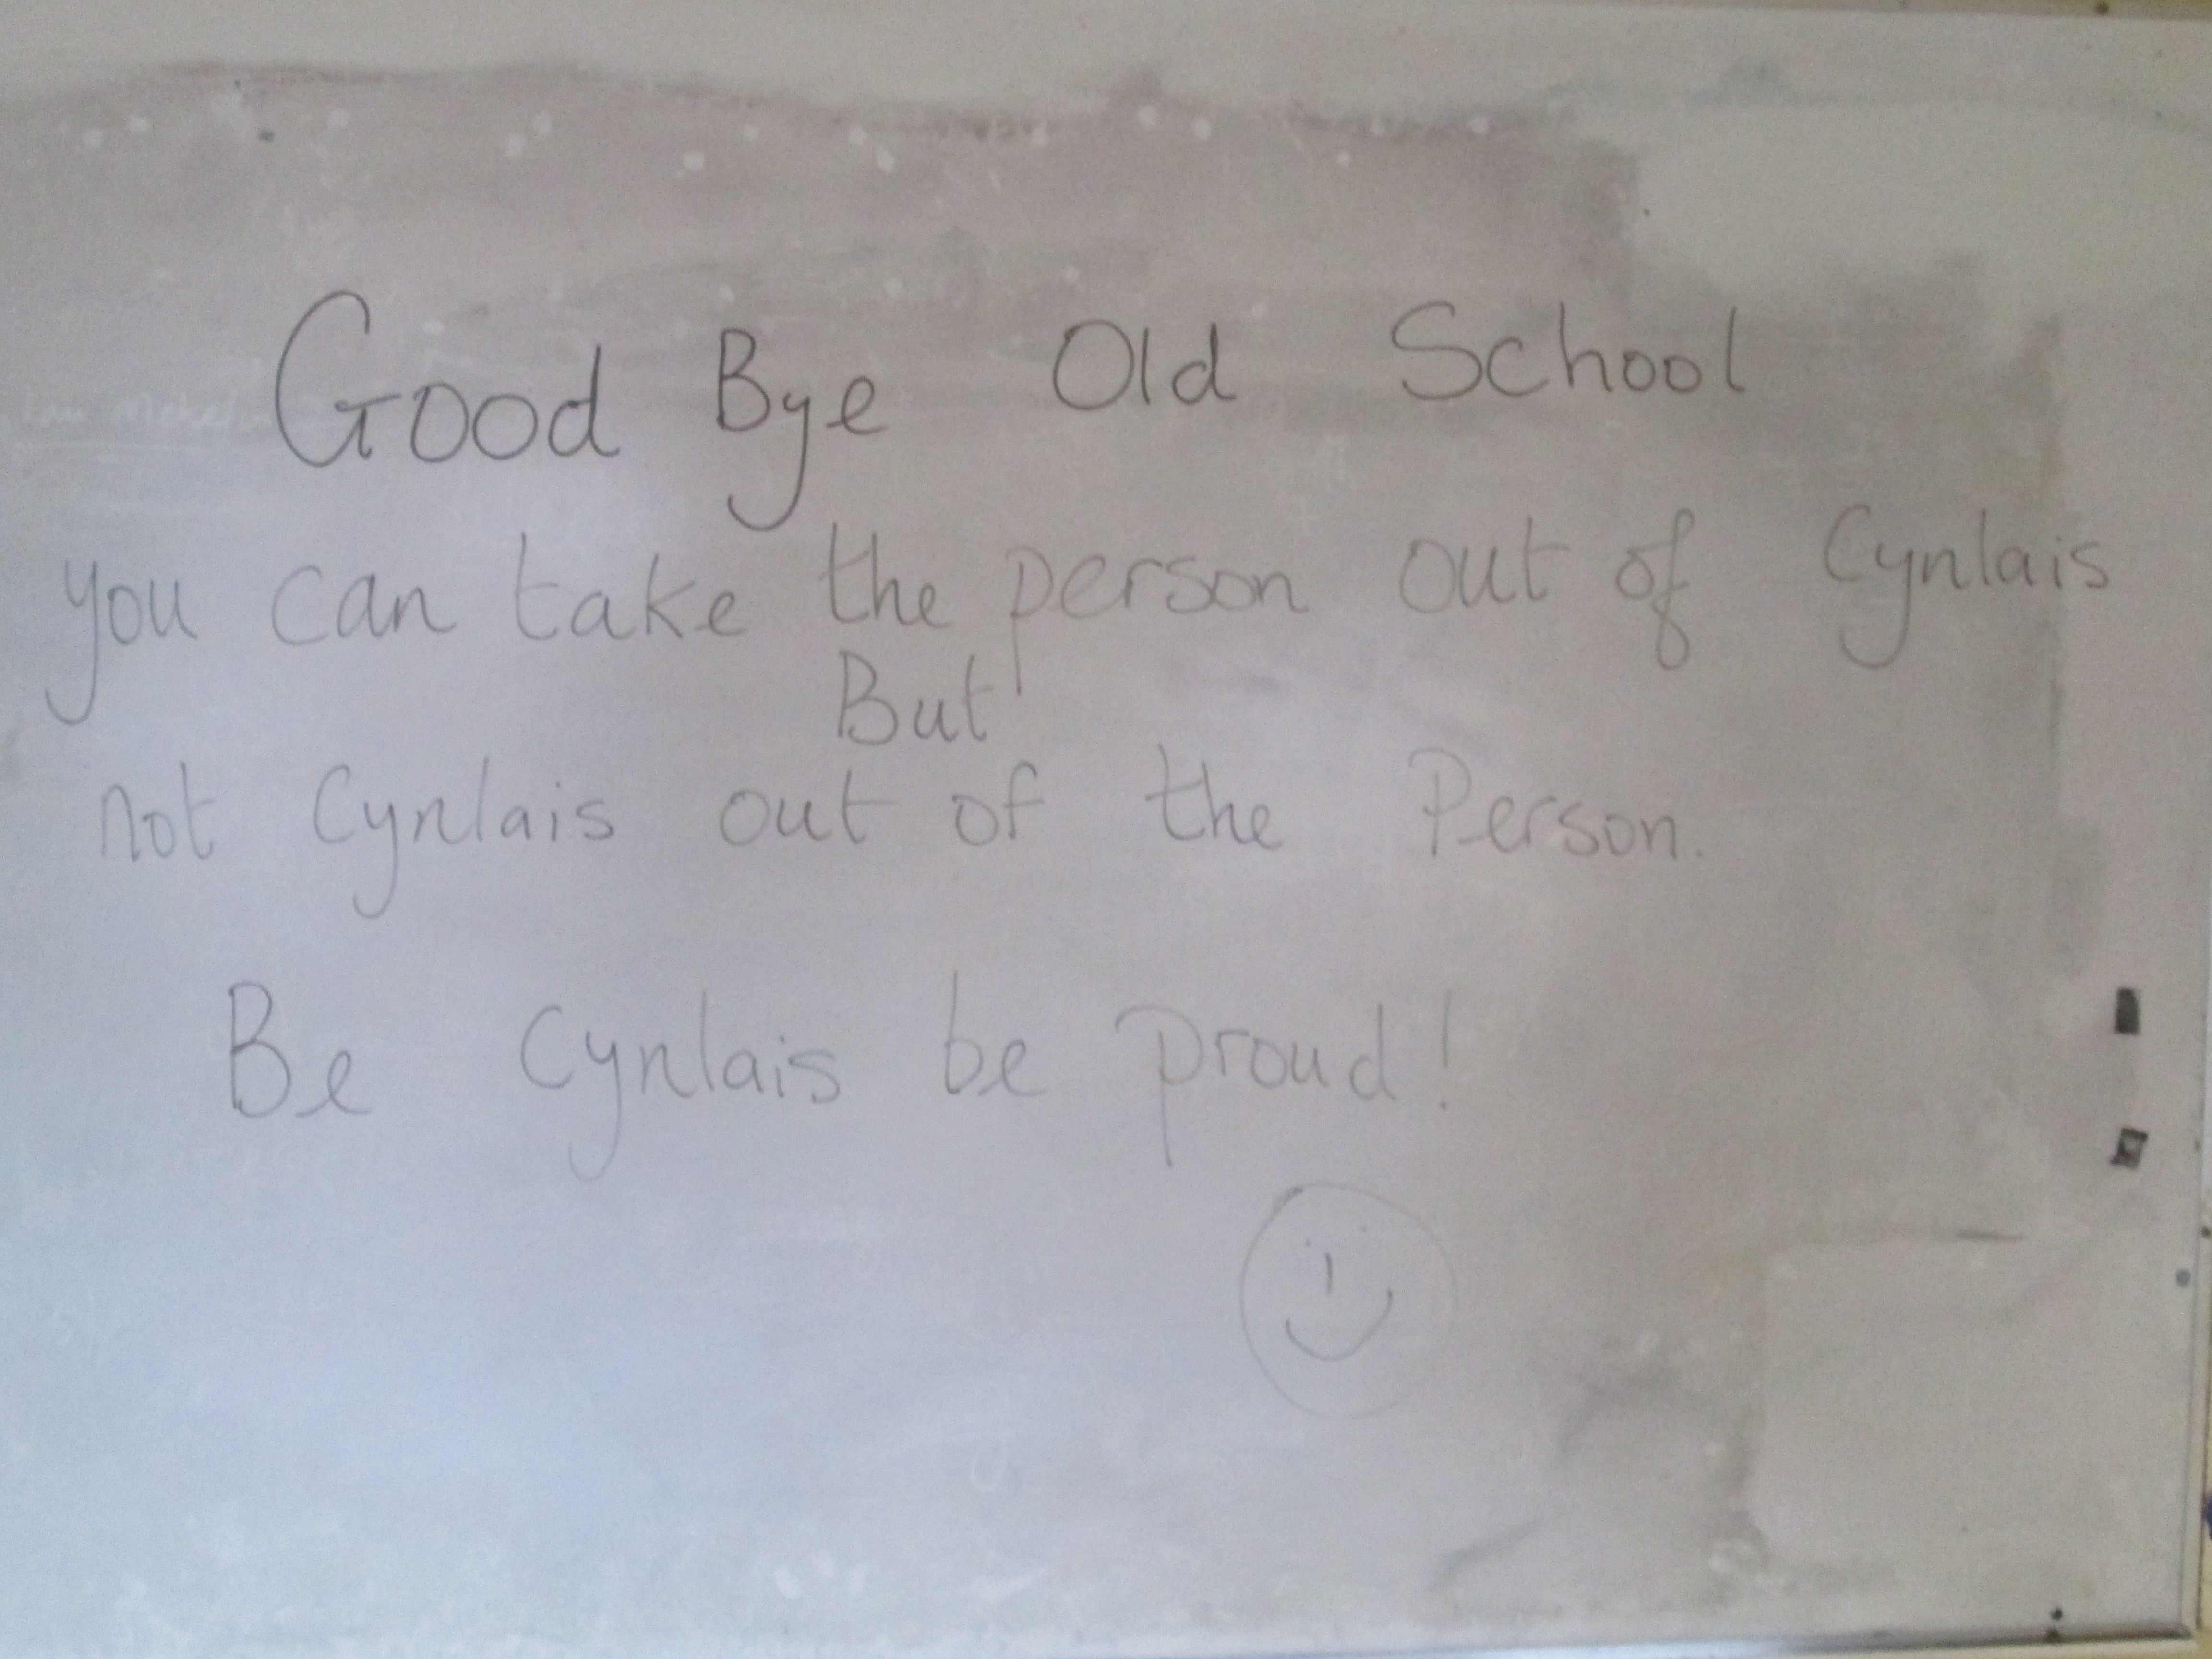 Good Bye Old School
you can take the person out of Cynlais
But
not Cynlais out of the Person.
Be Cynlais be proud!